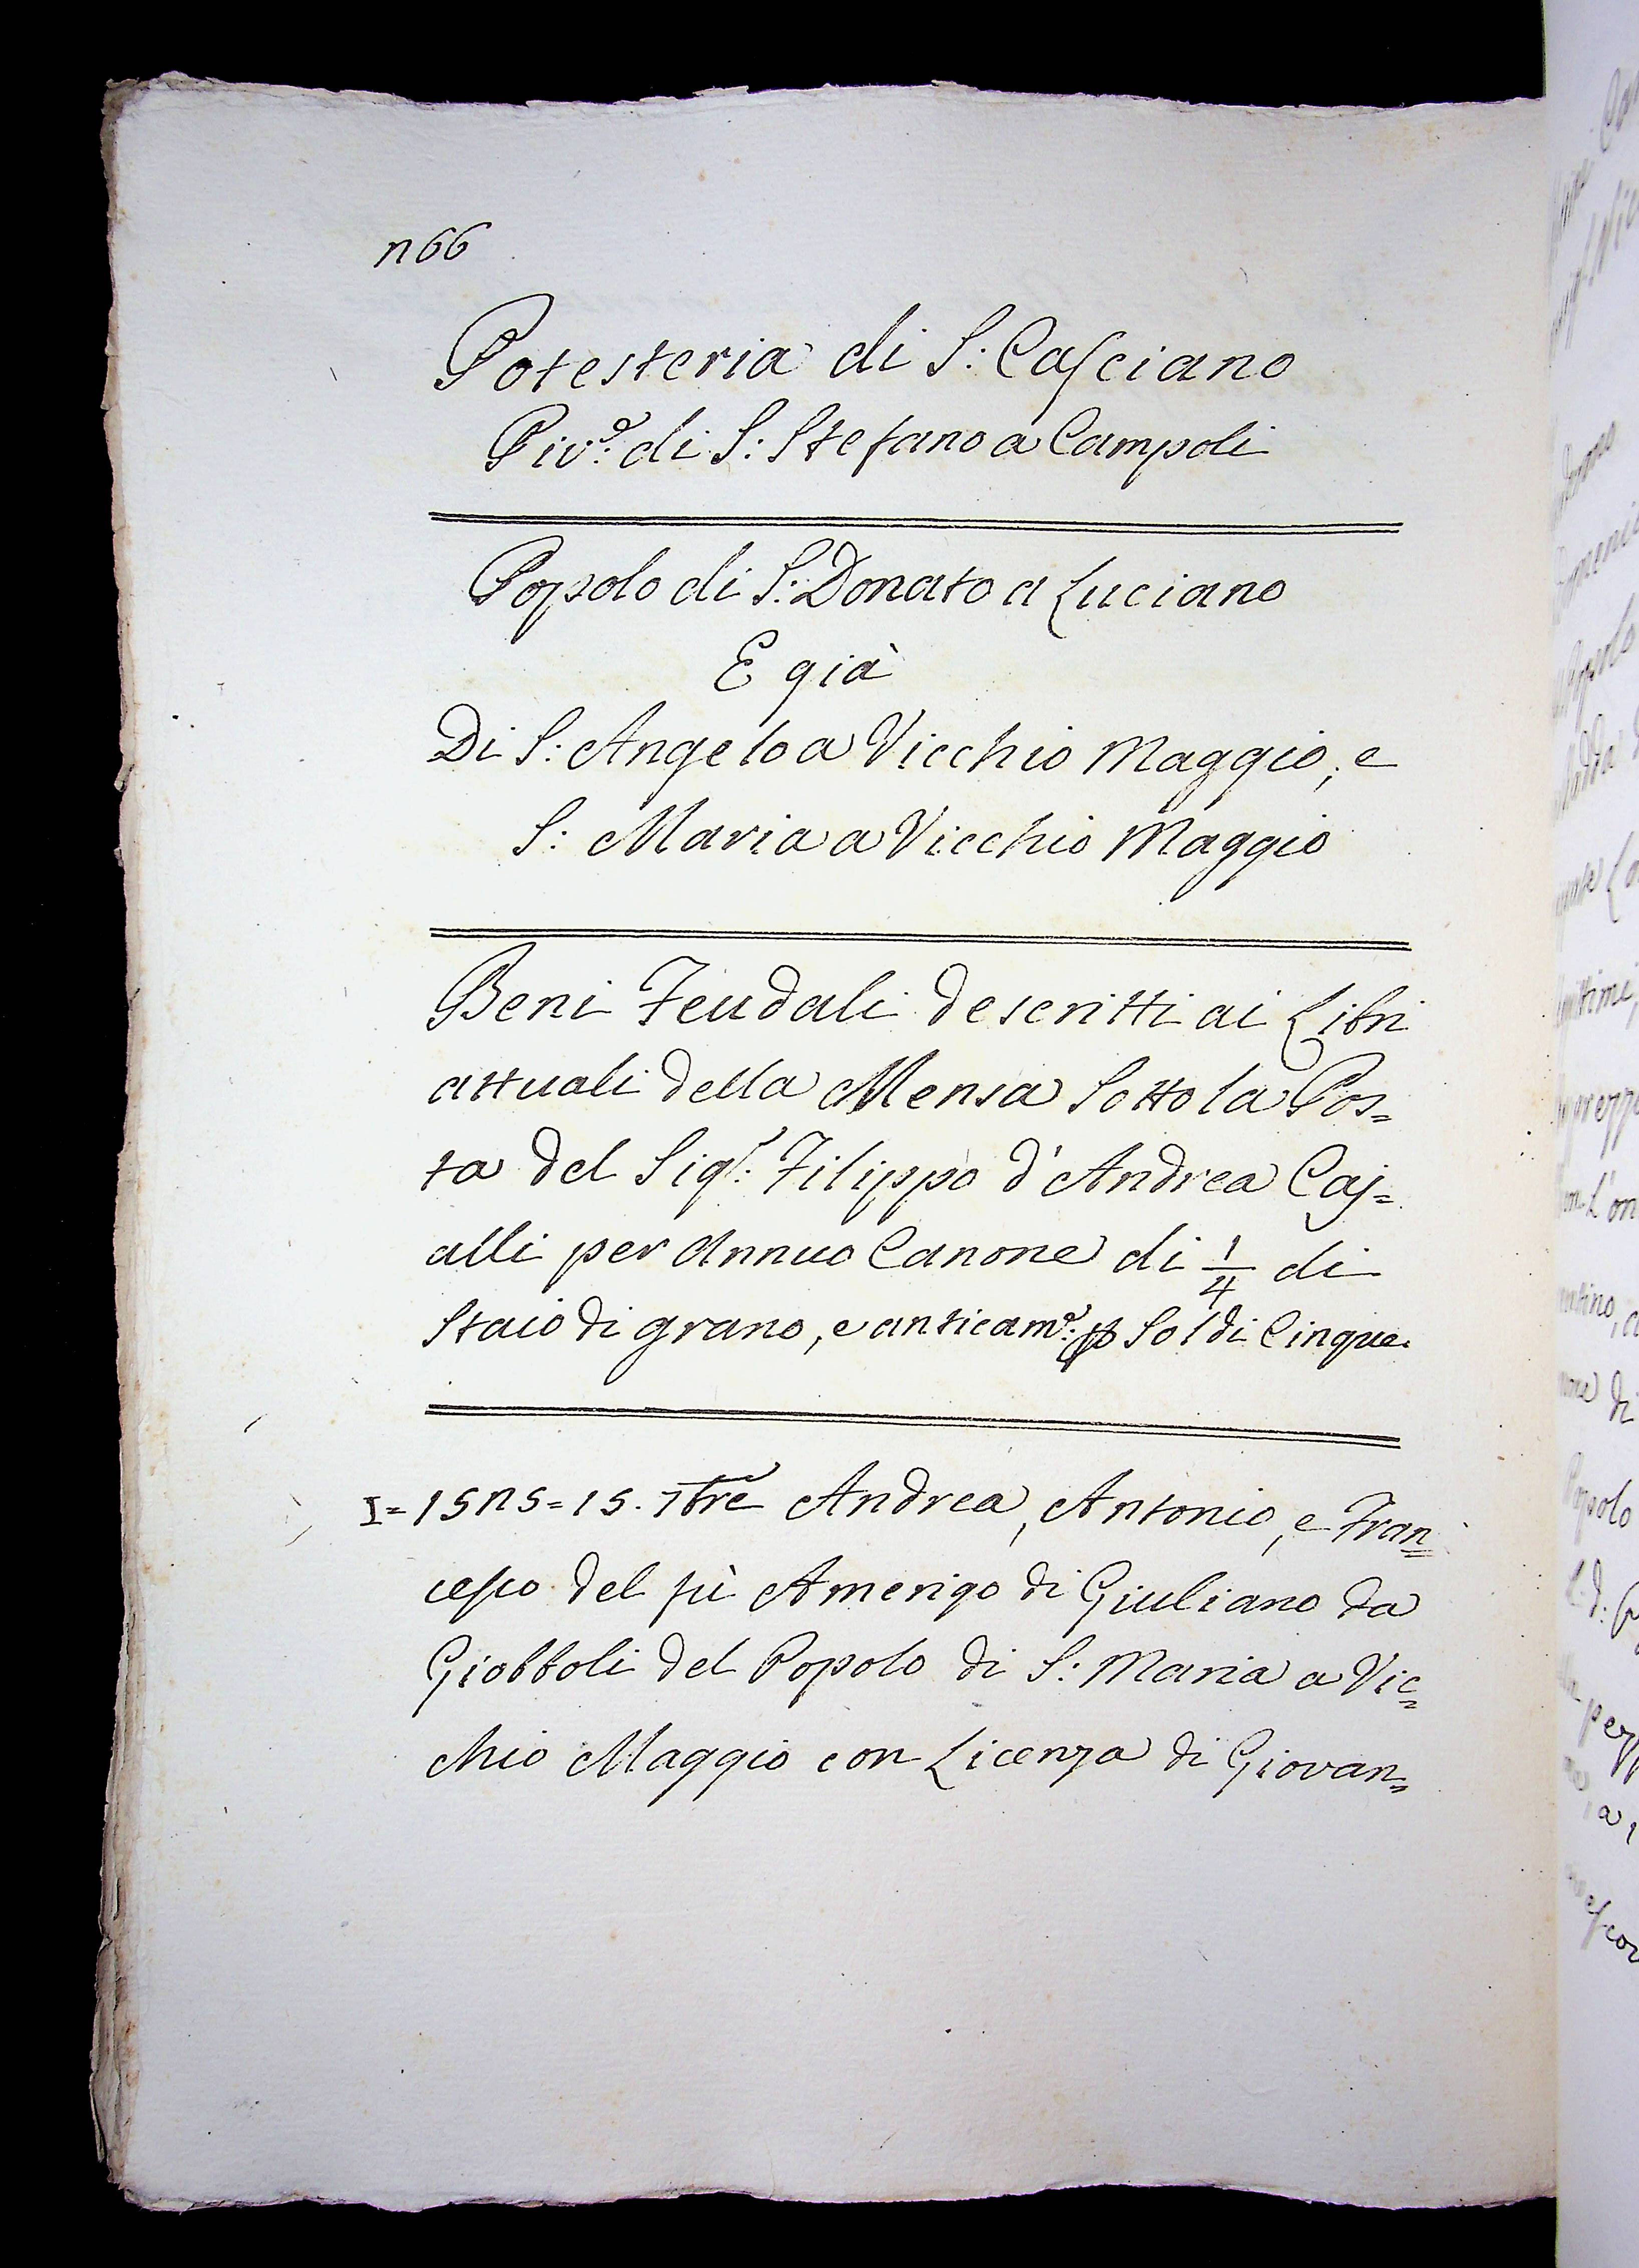 n 66
Potesteria di S: Casciano
Piv:e di S: Stefano a Campoli
Popolo di S: Donato a Luciano
E già
Di S: Angelo a Vicchio Maggio, e
S: Maria a Vicchio Maggio
Beni Feudali descritti ai Libri
attuali della Mensa Sotto la Pos=
ta del Sigr: Filippo d'Andrea Cas=
alli per Annuo Canone di 1/4 di
Staio di grano, e anticam:e p Soldi Cinque.
I= 15n5= 15. 7bre Andrea, Antonio, e Fran=
cesco del fù Amerigo di Giuliano da
Giobboli del Popolo di S: Maria a Vic=
chio Maggio con Licenza di Giovan=